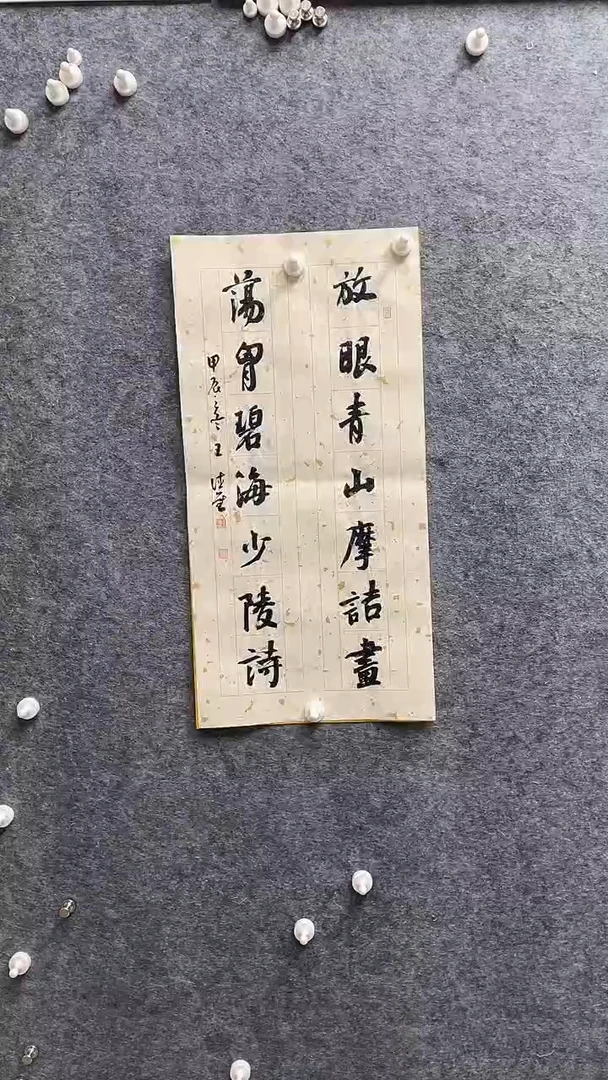 放眼青山摩詰畫
蕩胷碧海少陵詩
甲辰冬王